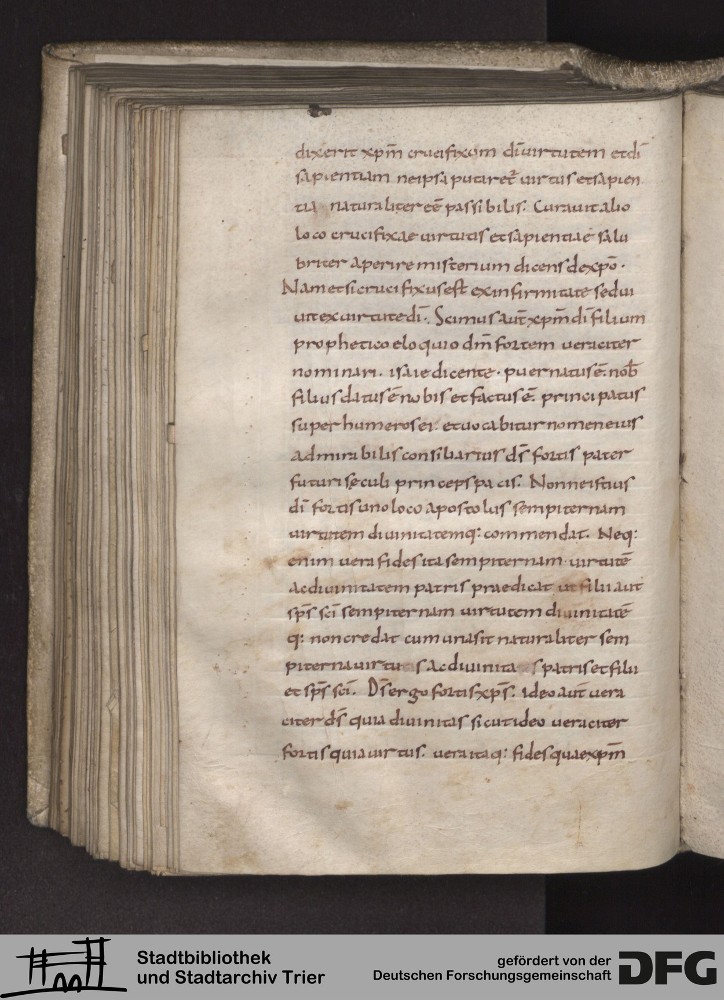 dixerit xpm̄ crucifixum dī uirtutem et dī
sapientiam ne ipsa putaret̄ uirtus et sapien
tia naturaliter eē passibilis. Curauit alio
loco crucifixae uirtutis et sapientiae salu
briter aperire misterium dicens de xpō.
Nam etsi crucifixus est ex infirmitate sed ui
uit ex uirtute dī. Scimus aūt xpm̄ dī filium
prophetico eloquio dm̄ fortem ueraciter
nominari. isaie dicente. puer natus ē. nob̄
filius datus ē nobis et factus ē. principatus
super humeros ei. et uocabitur nomen eius
admirabilis consiliarius ds̄ fortis pater
futuri seculi princeps pacis. Nonne istius
dī fortis uno loco apostolus sempiternam
uirtutem diuinitatemq: commendat. Neq:
enim uera fides ita sempiternam uirtutē
ac diuinitatem patris praedicat ut filii aut
sp̄s sc̄i sempiternam uirtutem diuinitatē
q: non credat cum una sit naturaliter sem
piterna uirtus ac diuinitas patris et filii
et sp̄s sc̄i. Ds̄ ergo fortis xp̄s. ideo aūt uera
citer ds̄ quia diuinitas sicut ideo ueraciter
fortis quia uirtus. uera itaq: fides quae xpm̄
Stadtbibliothek
und Stadtarchiv Trier
gefördert von der
Deutschen Forschungsgemeinschaft
DFG